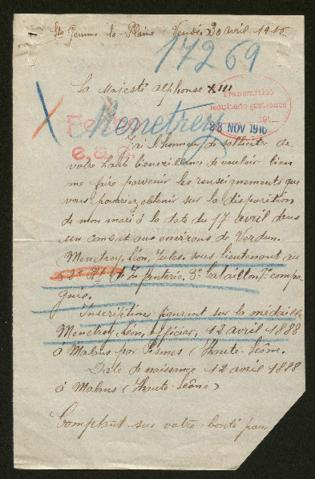 Ste Gemme la Plaine Vendée 30 avril 1916
17269
Sa Majesté Alphonse XIII
X
Menetrey
28 NOV 1916
J'ai l'honneur de solliciter de
votre haute bienveillance de vouloir bien
me faire parvenir les renseignements que
vous pourrez obtenir sur la disposition
de mon mari à la date du 17 Avril dans
un combat aux environs de Verdun.
(Menetrey, Léon, Jules, sous lieutenant au
d'Infanterie, 3e bataillon, compa
gnie.
Inscriptions figurant sur la médaille
Menetrey, Léon, officier, 12 avril 1888
à Malans par Pesmes (Haute-Saône.
Date de naissance 12 avril 1888
à Malans (Haute-Saône)
Comptant sur votre bonté pour